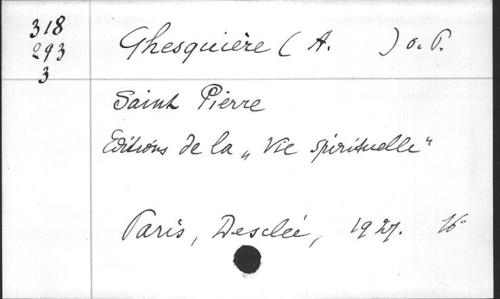 318
293
3
Ghesquière (A. ) o.P.
Saint Pierre
Editions de la „ Vie spirituelle "
Paris, Desclée, 1927. 16°